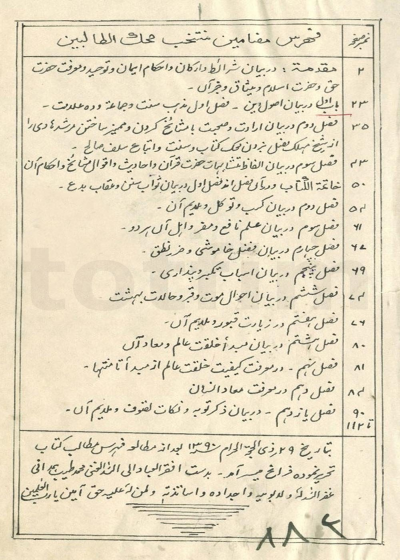 نمبر صفحه
فهرس مضامین منتخب محك الطالبین
۲ مقدمة : در بیان شرائط و ارکان و احکام ایمان و توحید و معرفت حضرت
حق و حضرت اسلام و میثاق و جز آن۔
۲۳ باب اول در بیان اصول دین۔ فصل اول مذهب سنت و جماعة و ده علامت۔
۳۵ فصل دوم در بیان ارادت و صحبت با مشائخ کردن و ممیز ساختن مرشد هادی را
از شیخ مهلك مضل بزدن محك کتاب و سنت و اتباع سلف صالح۔
۴۳ فصل سوم در بیان الفاظ متشابهات حضرت قرآن و احادیث و اقوال مشائخ و احکام آن
۵۰ خاتمة الکتاب و در آن فصل اول در بیان ثواب سنن و عقاب بدع۔
۵۴ فصل دوم در بیان کسب و توکل و ملایم آن۔
۶۱ فصل سوم در بیان علم نافع و مضر و اهل آن هر دو۔
۶۷ فصل چهارم در بیان فضل خاموشی و ضرر نطق۔
۶۹ فصل پنجم در بیان اسباب تکبر و پنداری۔
۷۴ فصل ششم در بیان احوال موت و قبر و حالات بهشت
۷۶ فصل هفتم در زیارت قبور و ملایم آن۔
۸۰ فصل هشتم در بیان مبدأ خلقت عالم و معاد آن
۸۱ فصل نهم۔ در معرفت کیفیت خلقت عالم از مبدأ تا منتها۔
۸۴ فصل دهم در معرفت معاد انسان
۹۰ فصل یازدهم۔ در بیان ذکر توبه و نکات تصوف و ملایم آن۔
تا ۱۱۲
بتاریخ ۲۹ ذی الحجة الحرام ۱۳۹۰ بعد از مطالعه فهرس مطالب کتاب
تحریر نموده فراغ میسر آمد۔ بدست افقر العباد الی الله الغنی محمد طیب
غفر الله له و لوالدیه و اجداده و اساتذته و لمن له علیه حق آمین یا رب العلمین
۸۸۲